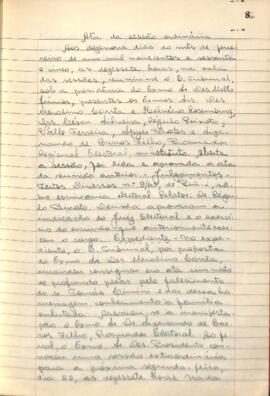 8
Ata da sessão ordinária
Aos dezenove dias do mês de feve-
reiro de um mil novecentos e sessenta
e cinco, às dezessete horas, na sala
das sessões, reuniu-se o E. Tribunal,
sob a presidência do Exmo. Sr. Des. Mello
Júnior, presentes os Exmos. Srs. Des.
Corrêa e
César Silveira, Peixoto,
Valle Ferreira, Prates e Sigis-
mundo de Barros Filho, Procurador
Regional Eleitoral, substituto. Aberta
a sessão, foi lida e aprovada a ata
da reunião anterior. Julgamentos.
Feitos Diversos nº de
escrivania eleitoral. Relator: Des. Régulo
Peixoto. Decisão: aprovaram a
indicação do Juiz Eleitoral e o exercí-
cio do escrivão que anteriormente exer-
cia o cargo. Expediente: No expe-
diente, o E. Tribunal, por proposta
do Exmo. Sr. Des. Merolino Corrêa,
mandou consignar em ata um voto
de profundo pesar pelo falecimento
do Sr. e dar dessa ho-
menagem conhecimento à família
enlutada. Associou-se à manifesta-
ção o Exmo. Sr. Dr. Sigismundo de Bar-
ros Filho, Procurador Eleitoral. Ao fi-
nal, o Exmo. Sr. Des. Presidente con-
vocou uma sessão extraordinária
para a próxima segunda-feira,
dia 22, às dezessete horas. Nada